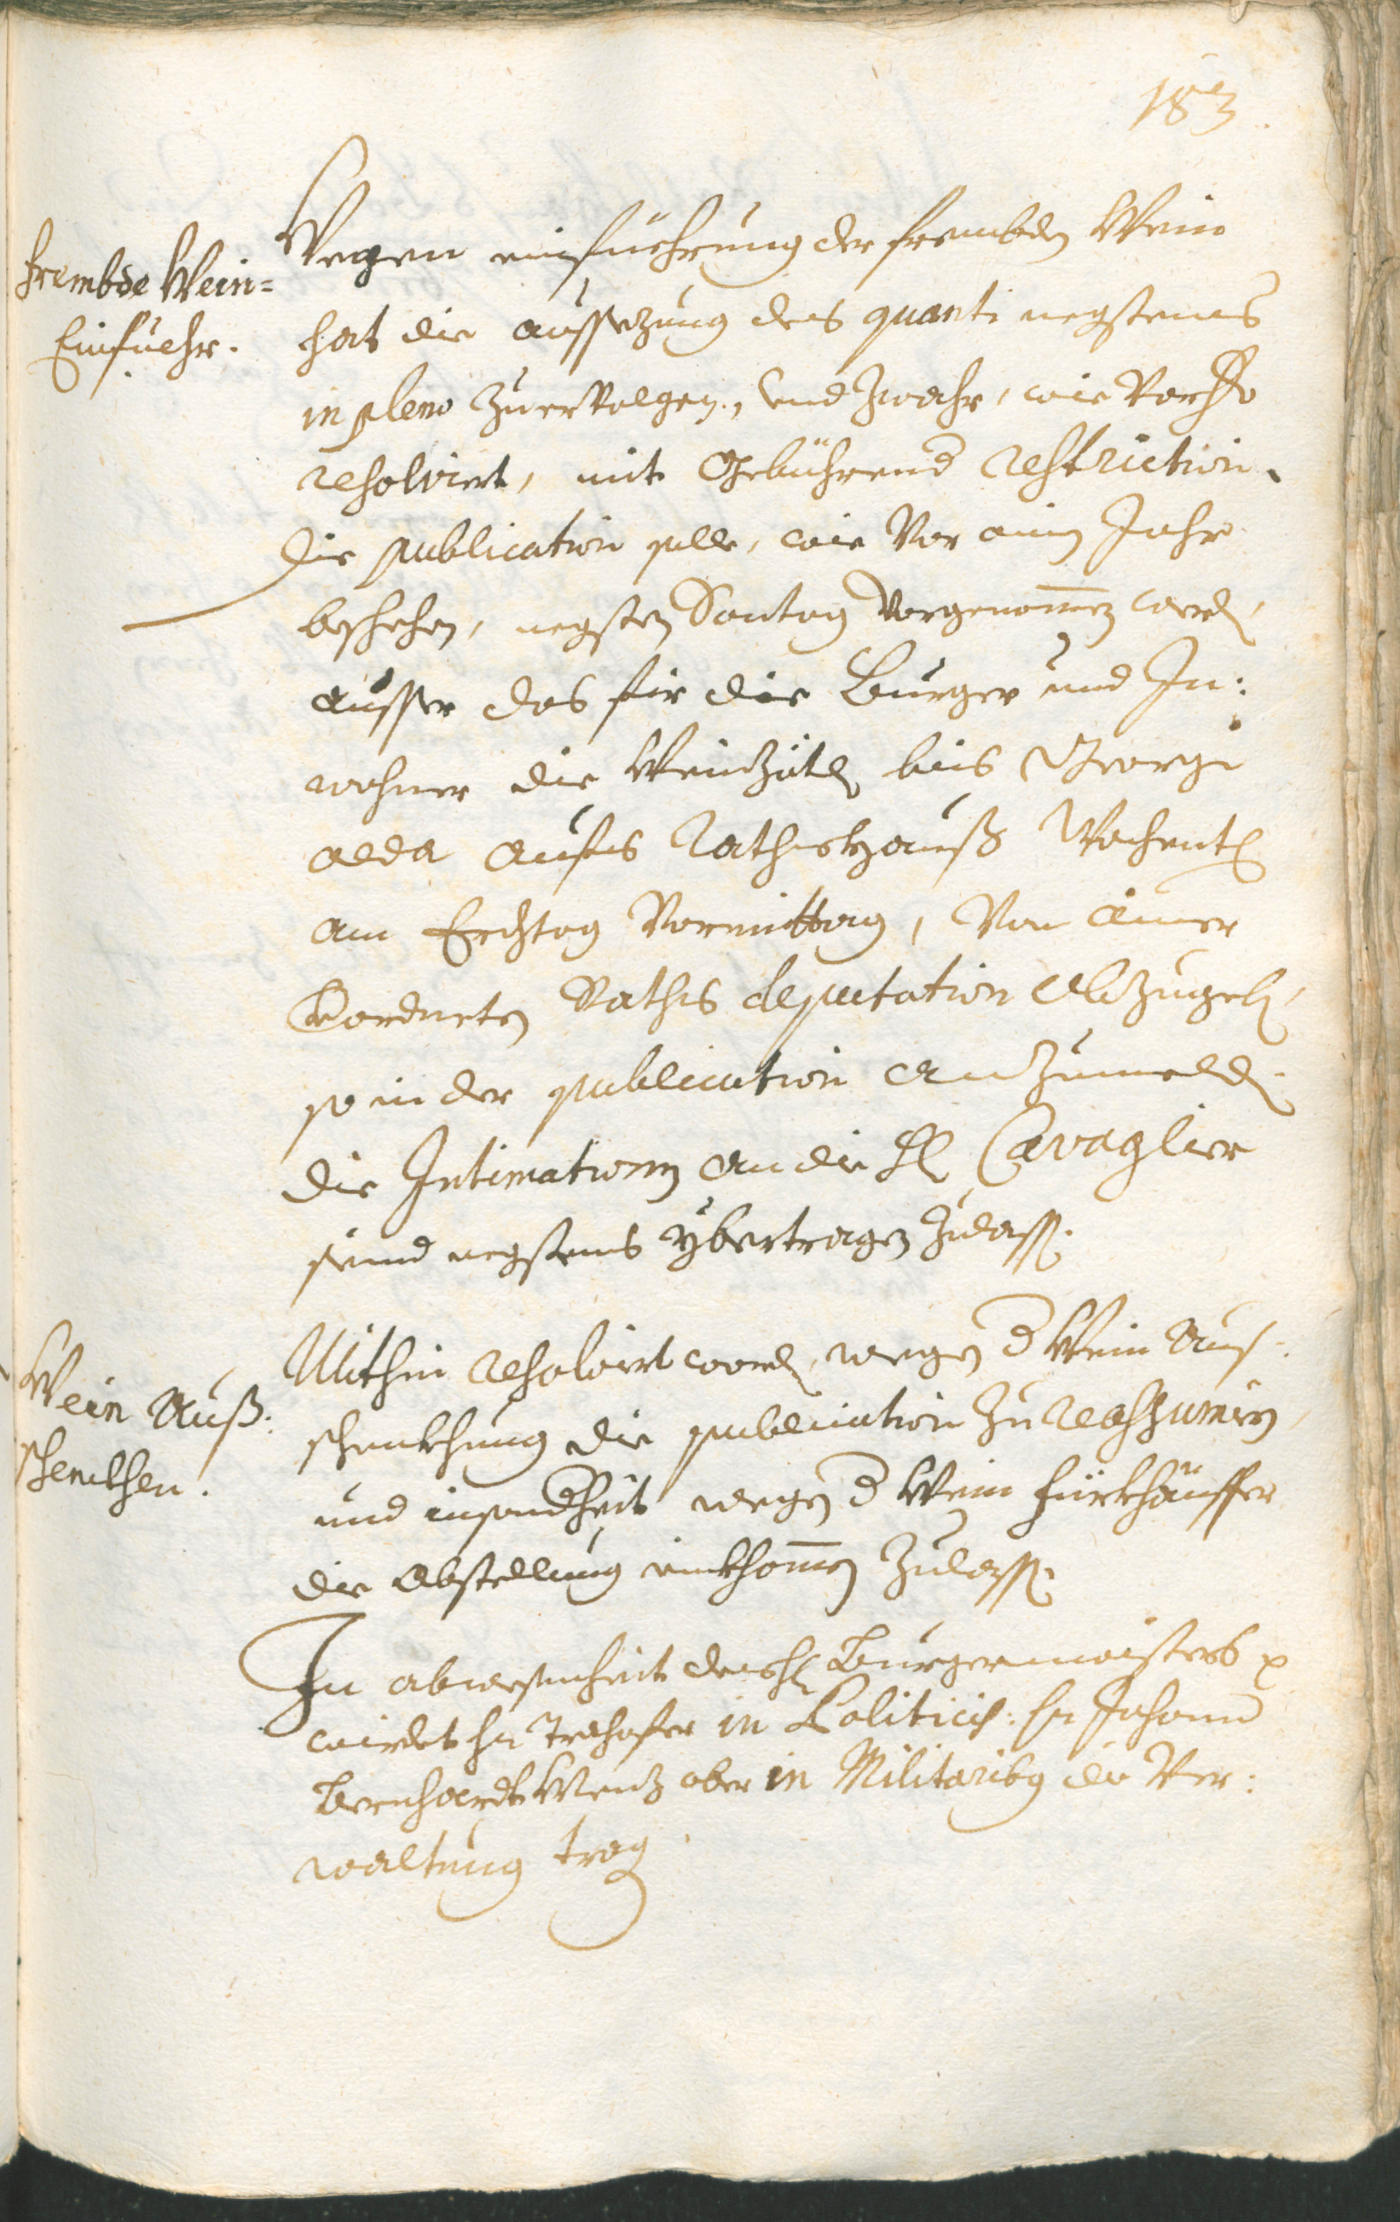 183
frembde Wein=
Einfuehr.
Wegen einfüehrung der frembden Wein
hat die aussezung des quanti negstens
in pleno zu ervolgen, und zwahr, wie
resolviert, mit Gebührend restriction.
die publication solle, wie vor ainem Jahr
beschehen, negsten Sontag vorgenommen werden,
ausser das für die Burger und In:
wohner die Weinzötl bis Georgi
alda aufs Rathshauß Wochentlich
am Erchtag Vormittag, Von ainer
Verordneten Raths deputation abzugeben,
so in der publication anzumelden.
die Intimationen an die H. Cavaglier
seind negstens ybertragen zulassen.
Wein Auß:
schenkhen.
Mithin resolvirt worden, wegen der Wein Aus:
schenkhung die publication zu reassumirn,
und insonderheit wegen der Wein fürkhäuffer
die Abstellung einkhommen zulassen.
In abwesenheit des H. Burgermaisters
wirdet Hr in Politicis: Hr Johann
Bernhardt Wenz aber in Militaribus die Ver:
waltung tragen.